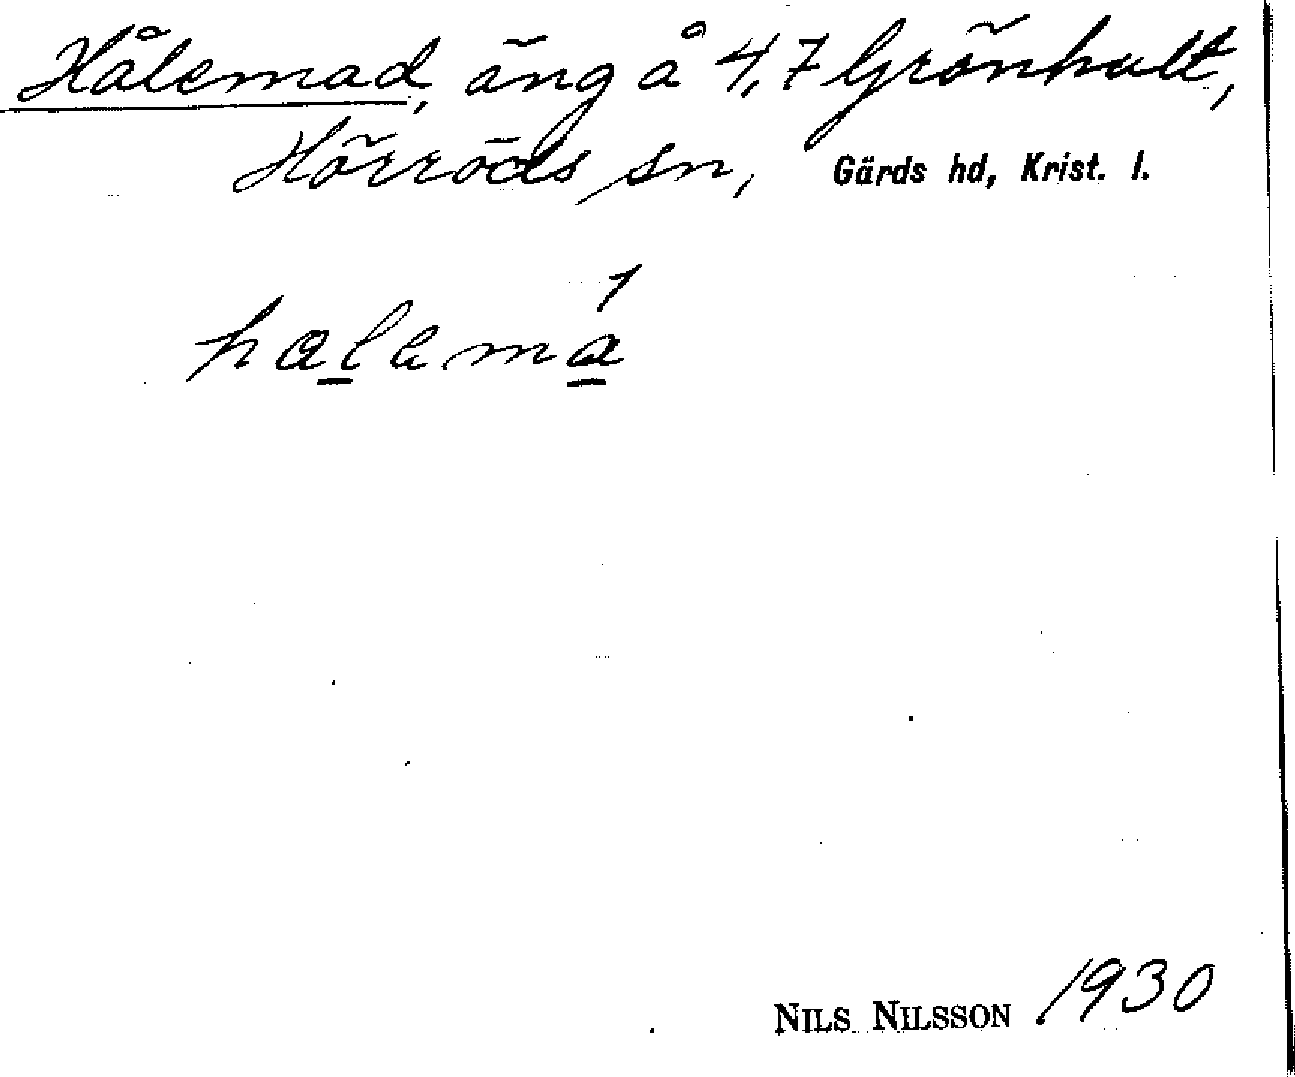 Hålemad, äng å 4,7 Grönhult,
Hörröds sn, Gärds hd, Krist. l.
NILS NILSSON 1930